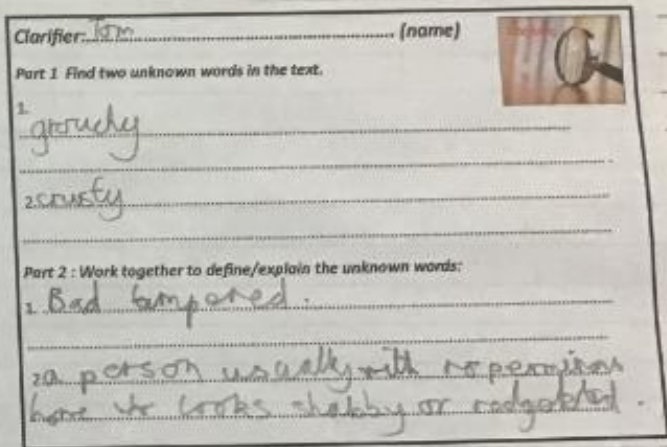 Clarifier: Tom (name)
Part 1 Find two unknown words in the text.
1. grouchy
2. crusty
Part 2 : Work together to define/explain the unknown words:
1. Bad tampered.
2. a person usually with no
home looks shabby or